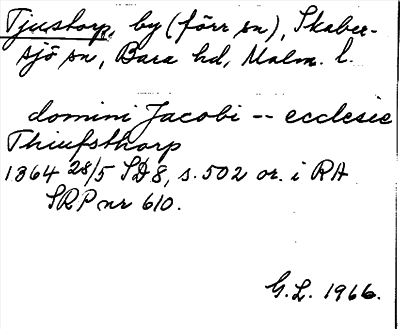 Tjustorp, by (förr sn), Skaber-
sjö sn, Bara hd, Malm. l.
domini Jacobi -- ecclesie
Thiufsthorp
1364 28/5 SD8, s. 502 or. i RA
SRP nr 610.
G.L. 1966.